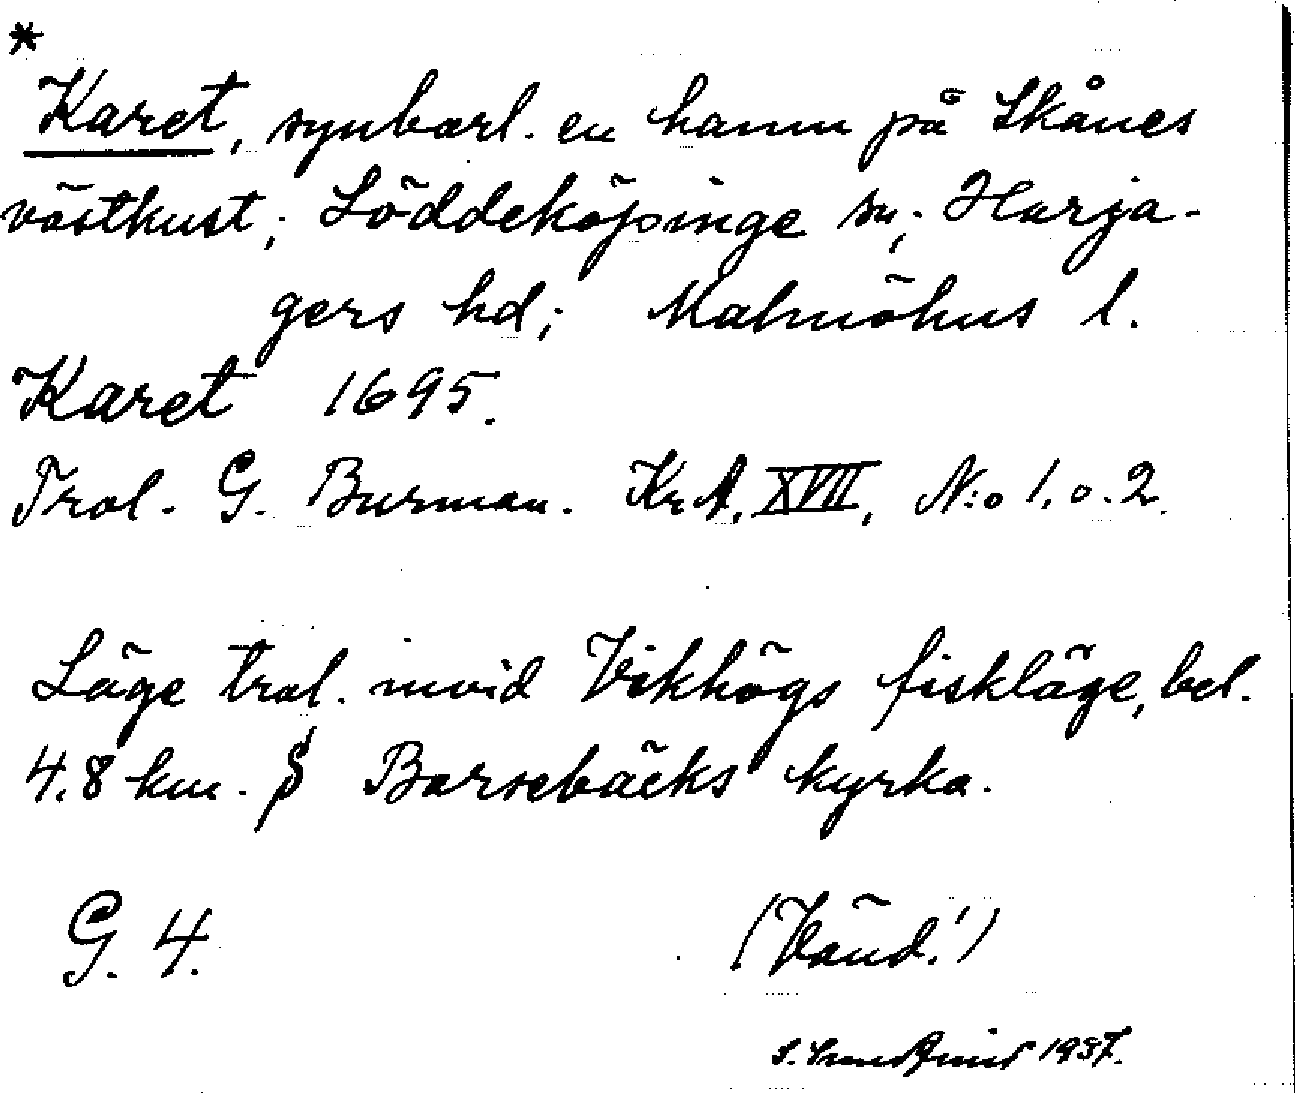 *
Karet, synbarl. en hamn på Skånes
västkust; Löddeköpinge sn; Harja-
gers hd; Malmöhus l.
Karet 1695.
Trol. G. Burman. Kr.A. XVII, N:o 1. o. 2.
Läge trol. invid Vikhögs fiskläge, bel.
4.8 km. S Barsebäcks kyrka.
G. 4.
(Vänd!)
1937.